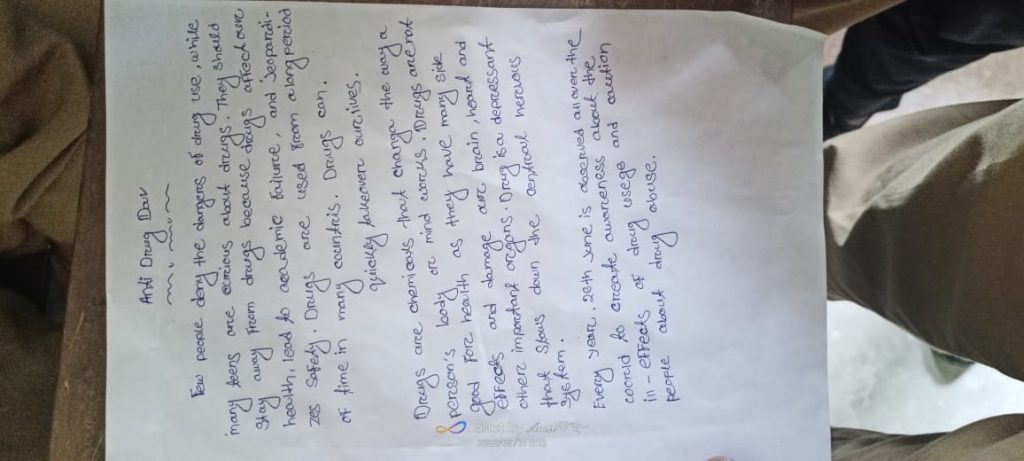 Anti Drug Day
Few people deny the dangers of drug use, while
many teens are curious about drugs. They should
stay away from drugs because drugs affect our
health, lead to academic failure, and jeopardi-
zes safety. Drugs are used from a long period
of time in many countris. Drugs can.
quickly takeover ourlives.
Drugs are chemicals that change the way a
person's body or mind works. Drugs are not
good for health as they have many side
effects and damage our brain, heard and
othere important organs. Drug is a depressant
that slows down the central nervous
system.
Every year. 26th June is observed all over the
coorld to create awareness about the
in-effects of drug usege and auction
people about drug abuse.
Shot by